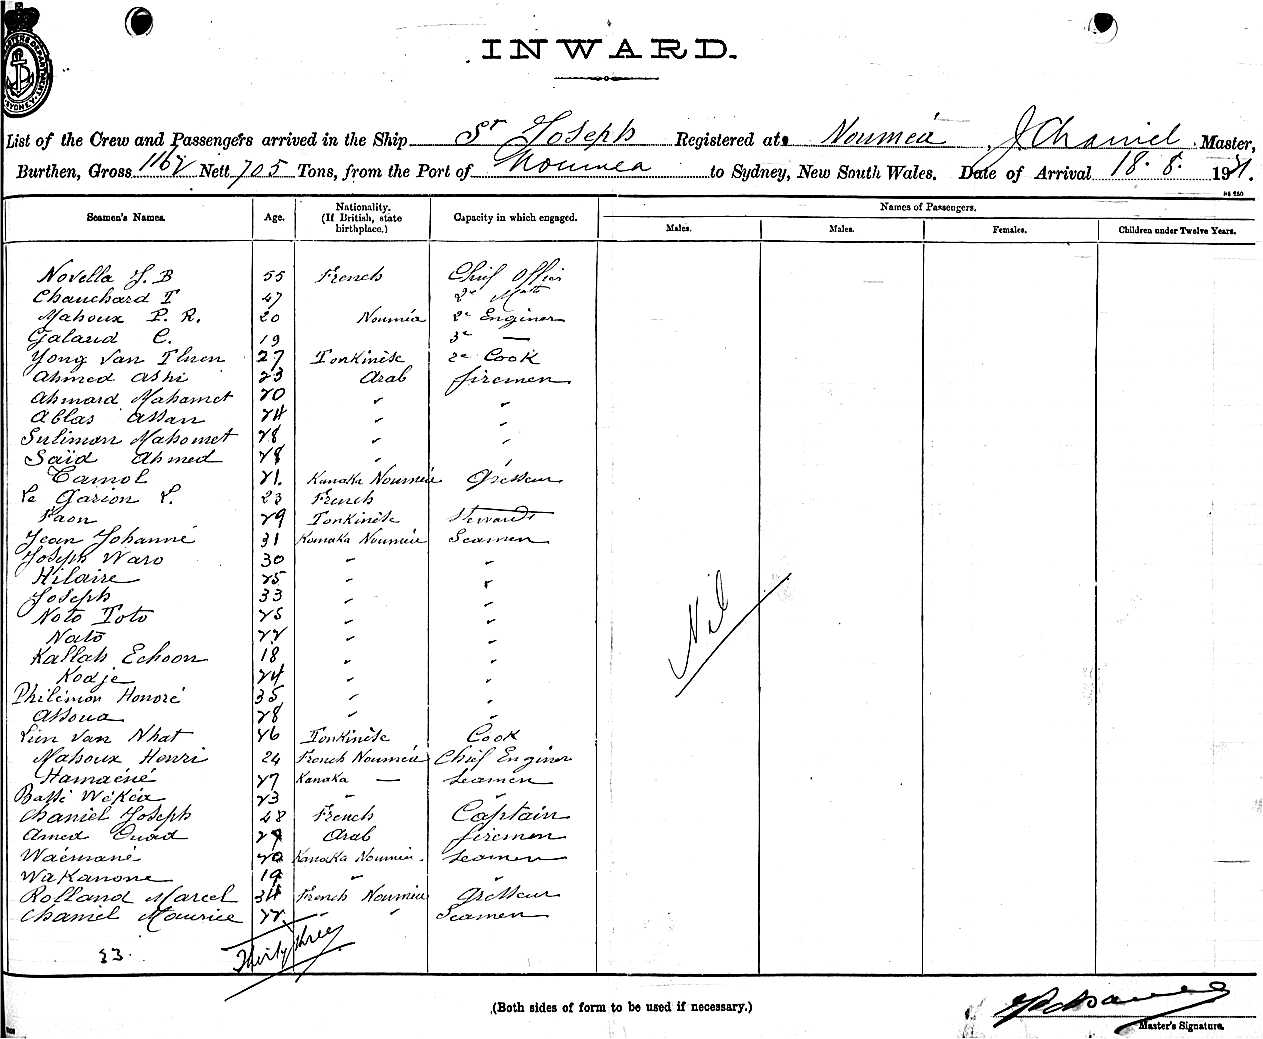 INWARD.
List of the Crew and Passengers arrived in the Ship St Joseph Registered at Nouméa, J Chaniel Master,
Burthen, Gross Nett 705 Tons, from the Port of Noumea to Sydney, New South Wales. Date of Arrival 18.8. 19
Seamen's Names. Age. Nationality. (If British, state birthplace.) Capacity in which engaged. Names of Passengers.
Males. Males. Females. Children under Twelve Years.
Novella J. B 55 French Chief Offier
Chauchard T 47 2e Mate
Mahoux P. R. 20 Nouméa 2e Enginer
Galaud C. 19 3e —
Yong Van Thuen 27 Tonkinèse 2e Cook
Ahmed Ashi 23 Arab firemen
Ahmard Mahamet 20 " "
Ablas Assan 24 " "
Suliman Mahomet 28 " "
Saïd Ahmed 28 " "
Camol 21. Kanaka Nouméa Grésseur
Le Garion L. 23 French
Paon 29 Tonkinèse Stewards
Jean Johanné 31 Kanaka Nouméa Seamen
Joseph Waro 30 " "
Hilaire 25 " "
Joseph 33 " "
Noto Toto 25 " "
Nato 22 " "
Kallah Echoon 18 " "
Kodje 24 " "
Philémon Honoré 35 " "
Assoua 28 " "
Lien Van Nhat 26 Tonkinèse Cook
Mahoux Henri 24 French Nouméa Chief Enginer
Hamaéné 27 Kanaka — Seamen
Bassé Wékéa 23 " "
Chaniel Joseph 48 French Captain
Amed Ouad 29 Arab firemen
Waémané 20 Kanaka Nouméa. Seamen
Wakanone 19 " "
Rolland Marcel 34 French Nouméa Grésseur
Chaniel Maurice 22 " " Seamen
Nil
33. Thirty three
(Both sides of form to be used if necessary.)
Master's Signature.